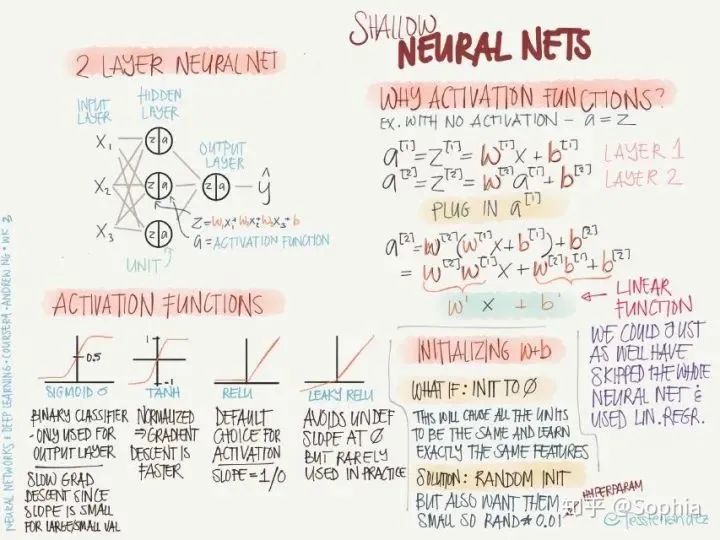 SHALLOW
NEURAL NETS
2 LAYER NEURAL NET
INPUT
LAYER
HIDDEN
LAYER
OUTPUT
LAYER
X₁
X₂
X₃
z a
z a
z a
z a
ŷ
Z=W₁X₁+W₂X₂+W₃X₃+b
a=ACTIVATION FUNCTION
UNIT
ACTIVATION FUNCTIONS
0.5
SIGMOID σ
BINARY CLASSIFIER
- ONLY USED FOR
OUTPUT LAYER
SLOW GRAD
DESCENT SINCE
SLOPE IS SMALL
FOR LARGE/SMALL VAL
1
-1
TANH
NORMALIZED
⇒ GRADIENT
DESCENT IS
FASTER
RELU
DEFAULT
CHOICE FOR
ACTIVATION
SLOPE=1/0
LEAKY RELU
AVOIDS UNDEF
SLOPE AT 0
BUT RARELY
USED IN PRACTICE
WHY ACTIVATION FUNCTIONS?
EX. WITH NO ACTIVATION - a=Z
a[1]=Z[1]=W[1]X+b[1] LAYER 1
a[2]=Z[2]=W[2]a[1]+b[2] LAYER 2
PLUG IN a[1]
a[2]=W[2](W[1]X+b[1])+b[2]
=W[2]W[1]X+W[2]b[1]+b[2]
W' X + b'
LINEAR
FUNCTION
WE COULD JUST
AS WELL HAVE
SKIPPED THE WHOLE
NEURAL NET &
USED LIN. REGR.
INITIALIZING W+b
WHAT IF: INIT TO 0
THIS WILL CAUSE ALL THE UNITS
TO BE THE SAME AND LEARN
EXACTLY THE SAME FEATURES
SOLUTION: RANDOM INIT
BUT ALSO WANT THEM
SMALL SO RAND * 0.01
HYPERPARAM
知乎 @Sophia
@jessfernandez
NEURAL NETWORKS & DEEP LEARNING • COURSERA • ANDREW NG • WK 3